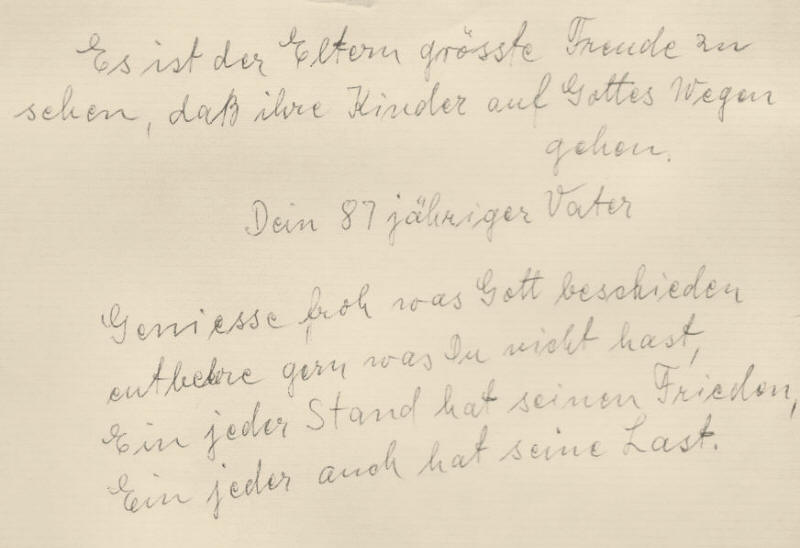 Es ist der Eltern grösste Freude zu
sehen, daß ihre Kinder auf Gottes Wegen
gehen.
Dein 87 jähriger Vater
Geniesse froh was Gott beschieden
entbehre gern was Du nicht hast,
Ein jeder Stand hat seinen Frieden,
Ein jeder auch hat seine Last.